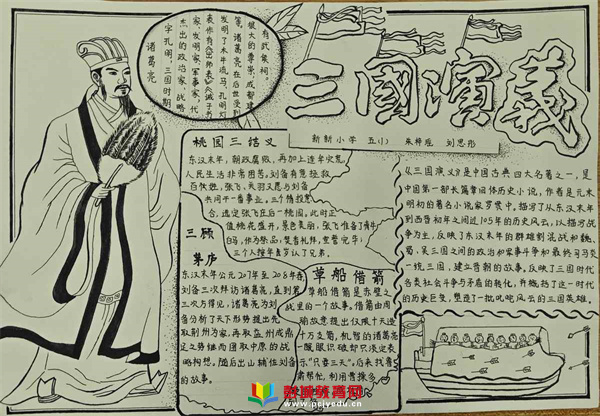 三國演義
新新小学 五(1) 朱梓逸 刘思彤
诸葛亮,
字孔明,三国时期
杰出的政治家、战略
家、发明家、军事家。代
表作有《出师表》《诫子书》
等,
发明了木牛流马、孔明灯
等。诸葛亮在后世受到
极大的尊崇,成都建
有武侯祠。
桃园三结义
东汉末年,朝政腐败,再加上连年灾荒,
人民生活非常困苦。刘备有意拯救
百姓,张飞、关羽又愿与刘备
共同干一番事业。三个情投意
合,选定张飞庄后一桃园。此时正
值桃花盛开,景色美丽,张飞准备了青牛
白马,作为祭品,焚香礼拜,宣誓完毕;
三个人按年岁认了兄弟。
三顾
茅庐
东汉末年公元207年至208年春,
刘备三次拜访诸葛亮,直到第
三次方得见,诸葛亮为刘
备分析了天下形势提出先
取荆州为家,再取益州成鼎
足之势继而图取中原的战
略构想。随后出山辅佐刘备
的故事。
草船借箭
草船借箭是赤壁之
战里的一个故事。借箭由周
瑜故意提出仅限十天造
十万支箭,机智的诸葛亮
一眼识破却只淡定表
示"只要三天"。后来找鲁
肃帮忙,利用曹操多
《三国演义》是中国古典四大名著之一,是
中国第一部长篇章回体历史小说,作者是元末
明初的著名小说家罗贯中。描写了从东汉末年
到西晋初年之间近105年的历史风云,以描写战
争为主,反映了东汉末年的群雄割混战和魏、
蜀、吴三国之间的政治和军事斗争和最终司马炎
一统三国,建立晋朝的故事。反映了三国时代
各类社会斗争与矛盾的转化,并概括了这一时代
的历史巨变,塑造了一批叱咤风云的三国英雄。
www.pejyedu.cn